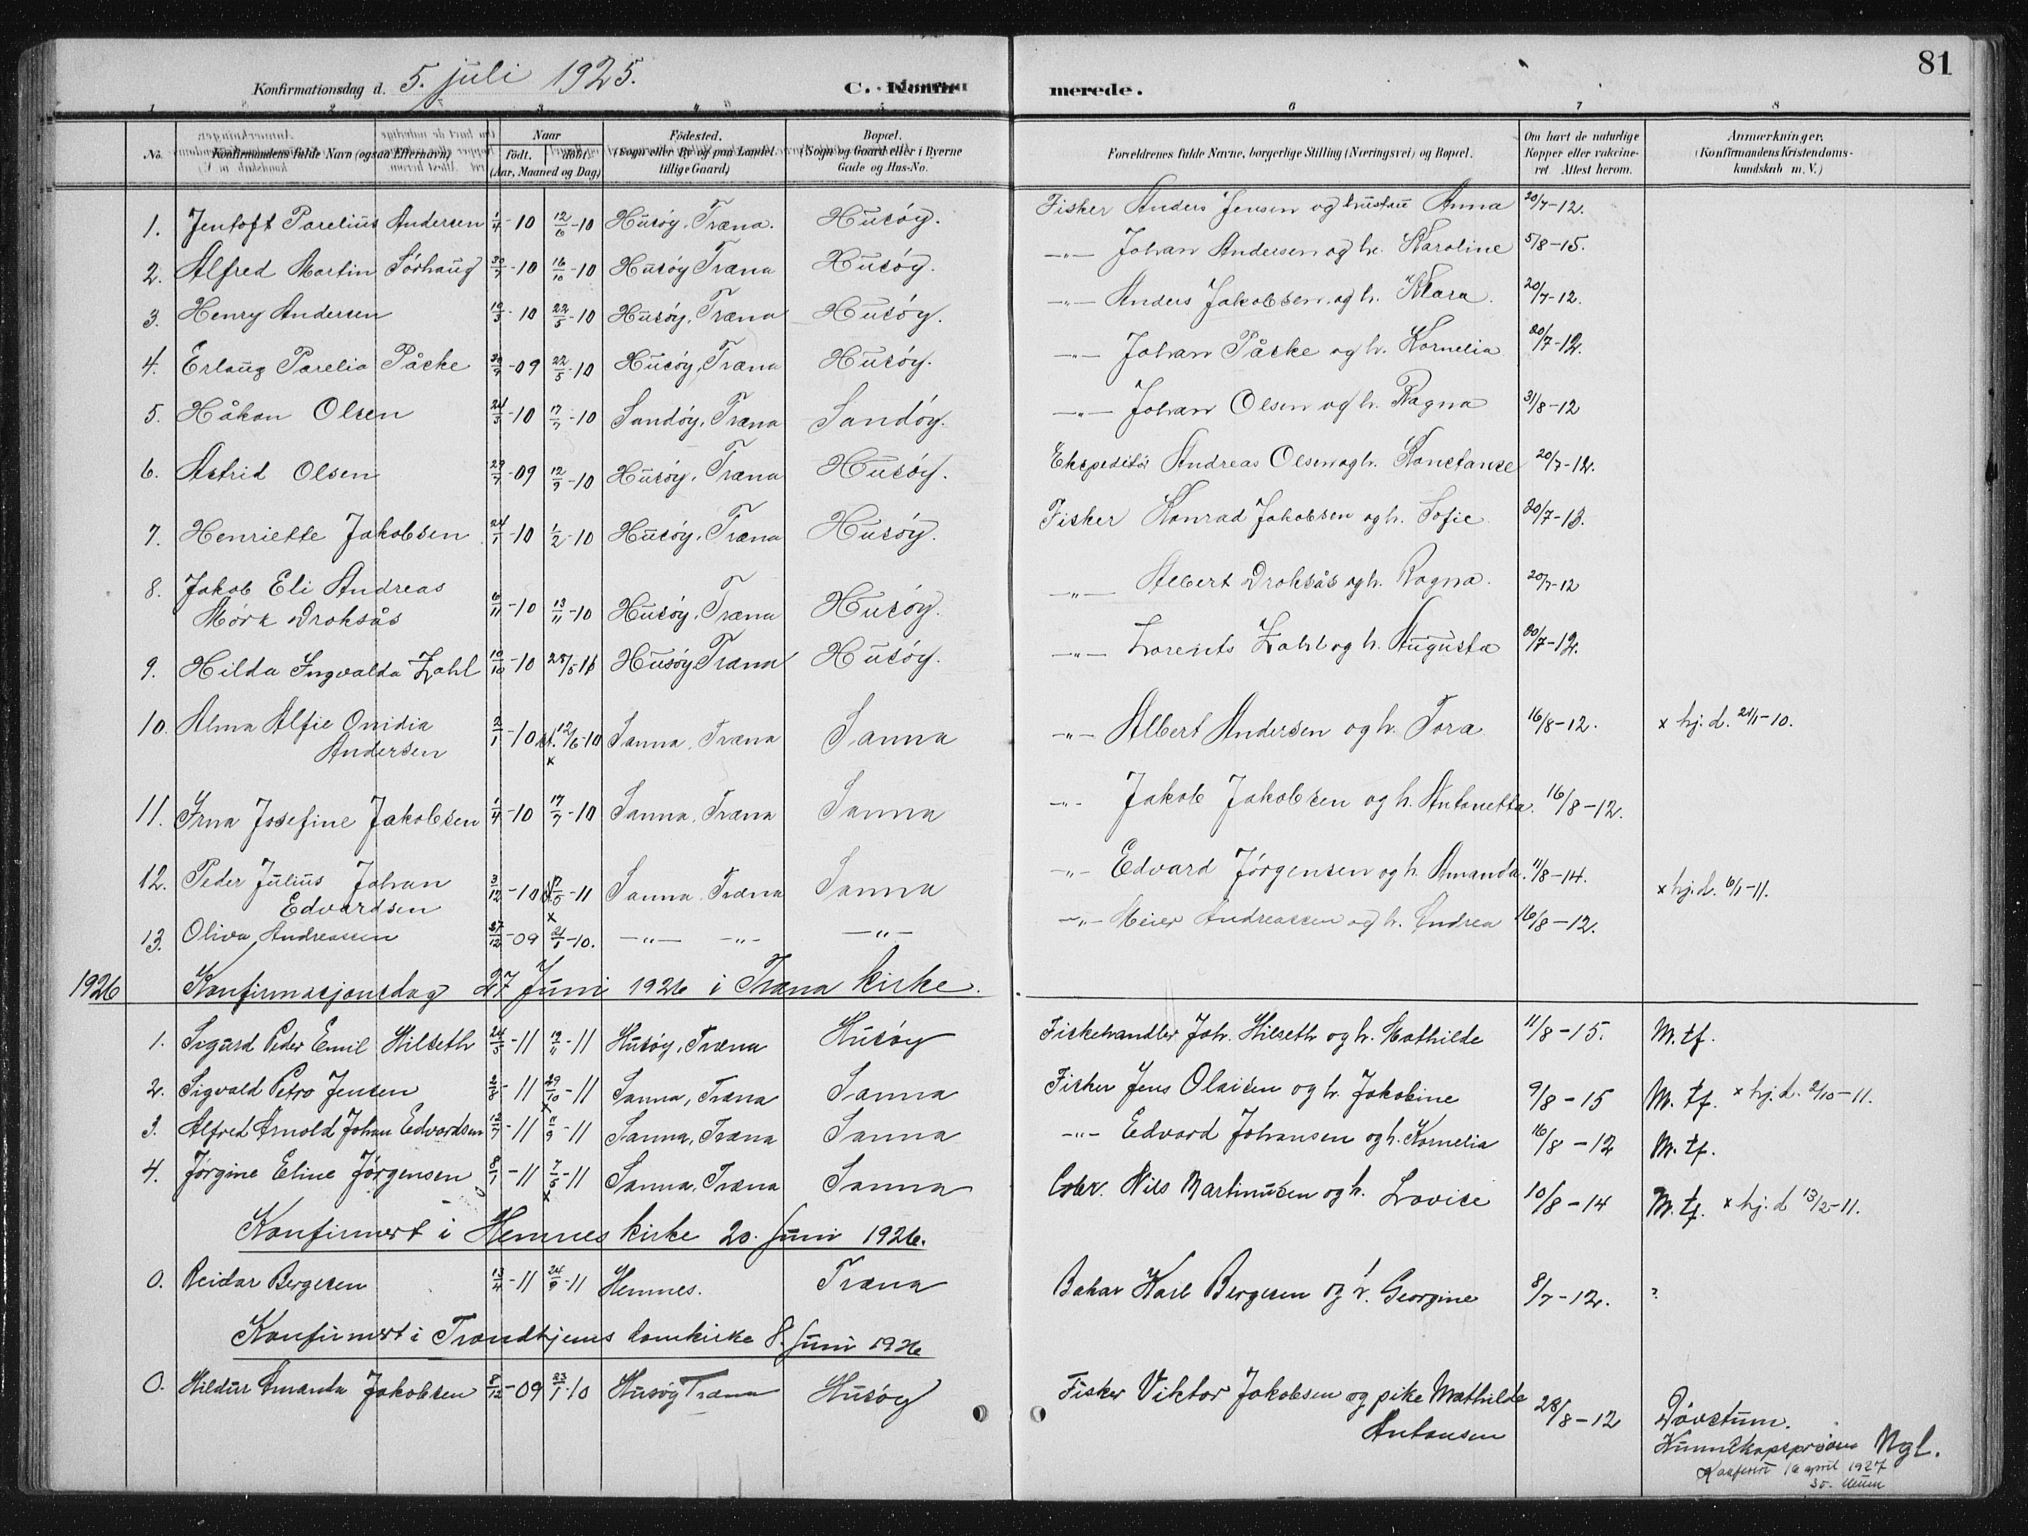 81
Konfirmationsdag d. 5. juli 1925. C. Konfir merede.
1 2 3 4 5 6 7 8
No. Konfirmandens fulde Navn (ogsaa Efternavn) Naar født. døbt. (Aar, Maaned og Dag) Fødested. (Sogn eller By og paa Landet tillige Gaard) Bopæl. (Sogn og Gaard eller i Byerne Gade og Hus-No. Forældrenes fulde Navne, borgerlige Stilling (Næringsvei) og Bopæl. Om havt de naturlige Kopper eller vaccineret. Attest herom. Anmærkninger. (Konfirmandens Kristendomskundskab m. V.)
1. Jentoft Parelius Andersen 1/4-10 12/6-10 Husøy, Træna. Husøy. Fisker Anders Jensen og hustru Anna 20/7-12.
2. Alfred Martin Sørhaug 30/7-10 16/10-10 Husøy Træna Husøy. -"- Johan Andersen og h. Karoline 5/8-15.
3. Henry Andersen 10/3-10 22/5-10 Husøy, Træna Husøy. -"- Anders Jakobsen og h. Klara. 20/7-12.
4. Erlaug Parelia Påske 30/9-09 22/5-10 Husøy, Træna Husøy. -"- Johan Påske og h. Kornelia 20/7-12.
5. Håkon Olsen 24/3-10 17/7-10 Sandøy, Træna Sandøy. -"- Johan Olsen og h. Ragna 31/8-12
6. Astrid Olsen 29/7-09 12/9-10 Husøy, Træna Husøy. Ekspeditør Andreas Olsen og h. Konstanse 20/7-12.
7. Henriette Jakobsen 24/1-10 1/2-10 Husøy, Træna Husøy. Fisker Konrad Jakobsen og h. Sofie 20/7-13.
8. Jakob Eli Andreas
Mørk Droksås 6/11-10 13/11-10 Husøy, Træna Husøy. -"- Albert Droksås og h. Ragna. 20/7-12
9. Hilda Ingvalda Zahl 10/10-10 28/5-11 Husøy Træna Husøy. -"- Lorents Zahl og h. Augusta 20/7-12.
10. Alma Alfie Ovidia
Andersen 2/1-10 st. 12/6-10 x Sanna, Træna Sanna -"- Albert Andersen og h. Tora 16/8-12. x hj. d. 21/1-10.
11. Irna Josefine Jakobsen 1/4-10 17/7-10 Sanna, Træna Sanna -"- Jakob Jakobsen og h. Antonetta. 16/8-12.
12. Peder Julius Johan
Edvardsen 3/12-10 -11 x Sanna, Træna Sanna -"- Edvard Jørgensen og h. Amanda. 11/8-14. x hj. d. 6/1-11.
13. Oliva Andreassen 27/12-09 21/1-10. -"- -"- -"- -"- Meier Andreassen og h. Andrea 16/8-12.
1926 Konfirmasjonsdag 27 Juni 1926 i Træna kirke.
1. Sigurd Peder Emil Hilseth 24/5-11 19/11-11 Husøy, Træna Husøy Fiskehandler Joh. Hilseth og h. Mathilde 11/8-15. M. tf.
2. Sigvald Petro Jensen 2/8-11 29/10-11 x Sanna, Træna Sanna Fisker Jens Olaisen og h. Jakobine 9/8-15 M. tf. x hj. d. 2/10-11.
3. Alfred Arnold Johan Edvardsen 12/7-11 -11 Sanna, Træna Sanna -"- Edvard Johansen og h. Kornelia 16/8-12 M. tf.
4. Jørgine Eline Jørgensen 8/1-11 7/5-11 x Sanna, Træna Sanna Nils Martinussen og h. Lovise 10/8-14 M. tf. x hj. d 13/2-11.
Konfirmert i Hemnes kirke 20. Juni 1926.
0. Reidar Bergesen 13/4-11 24/9-11 Hemnes. Træna Baker Karl Bergesen og h. Georgine 8/7-12. ?
Konfirmert i Trondhjems domkirke 8. Juni 1926
0. Hildur Amanda Jakobsen 8/12-09 23/1-10 Husøy Træna Husøy Fisker Viktor Jakobsen og pike Mathilde
Antonsen 28/8-12 Døvstum.
Kunnskapsprøven Ngl.
16 april 1927